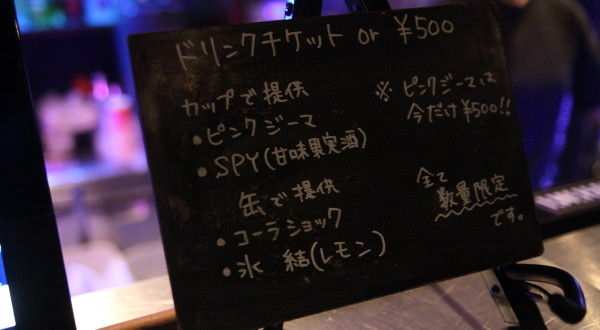 ドリンクチケット or ¥500
カップで提供
・ピンクジーマ
・SPY(甘味果実酒)
缶で提供
・コーラショック
・氷結(レモン)
※ピンクジーマは
今だけ¥500!!
全て
数量限定
です。